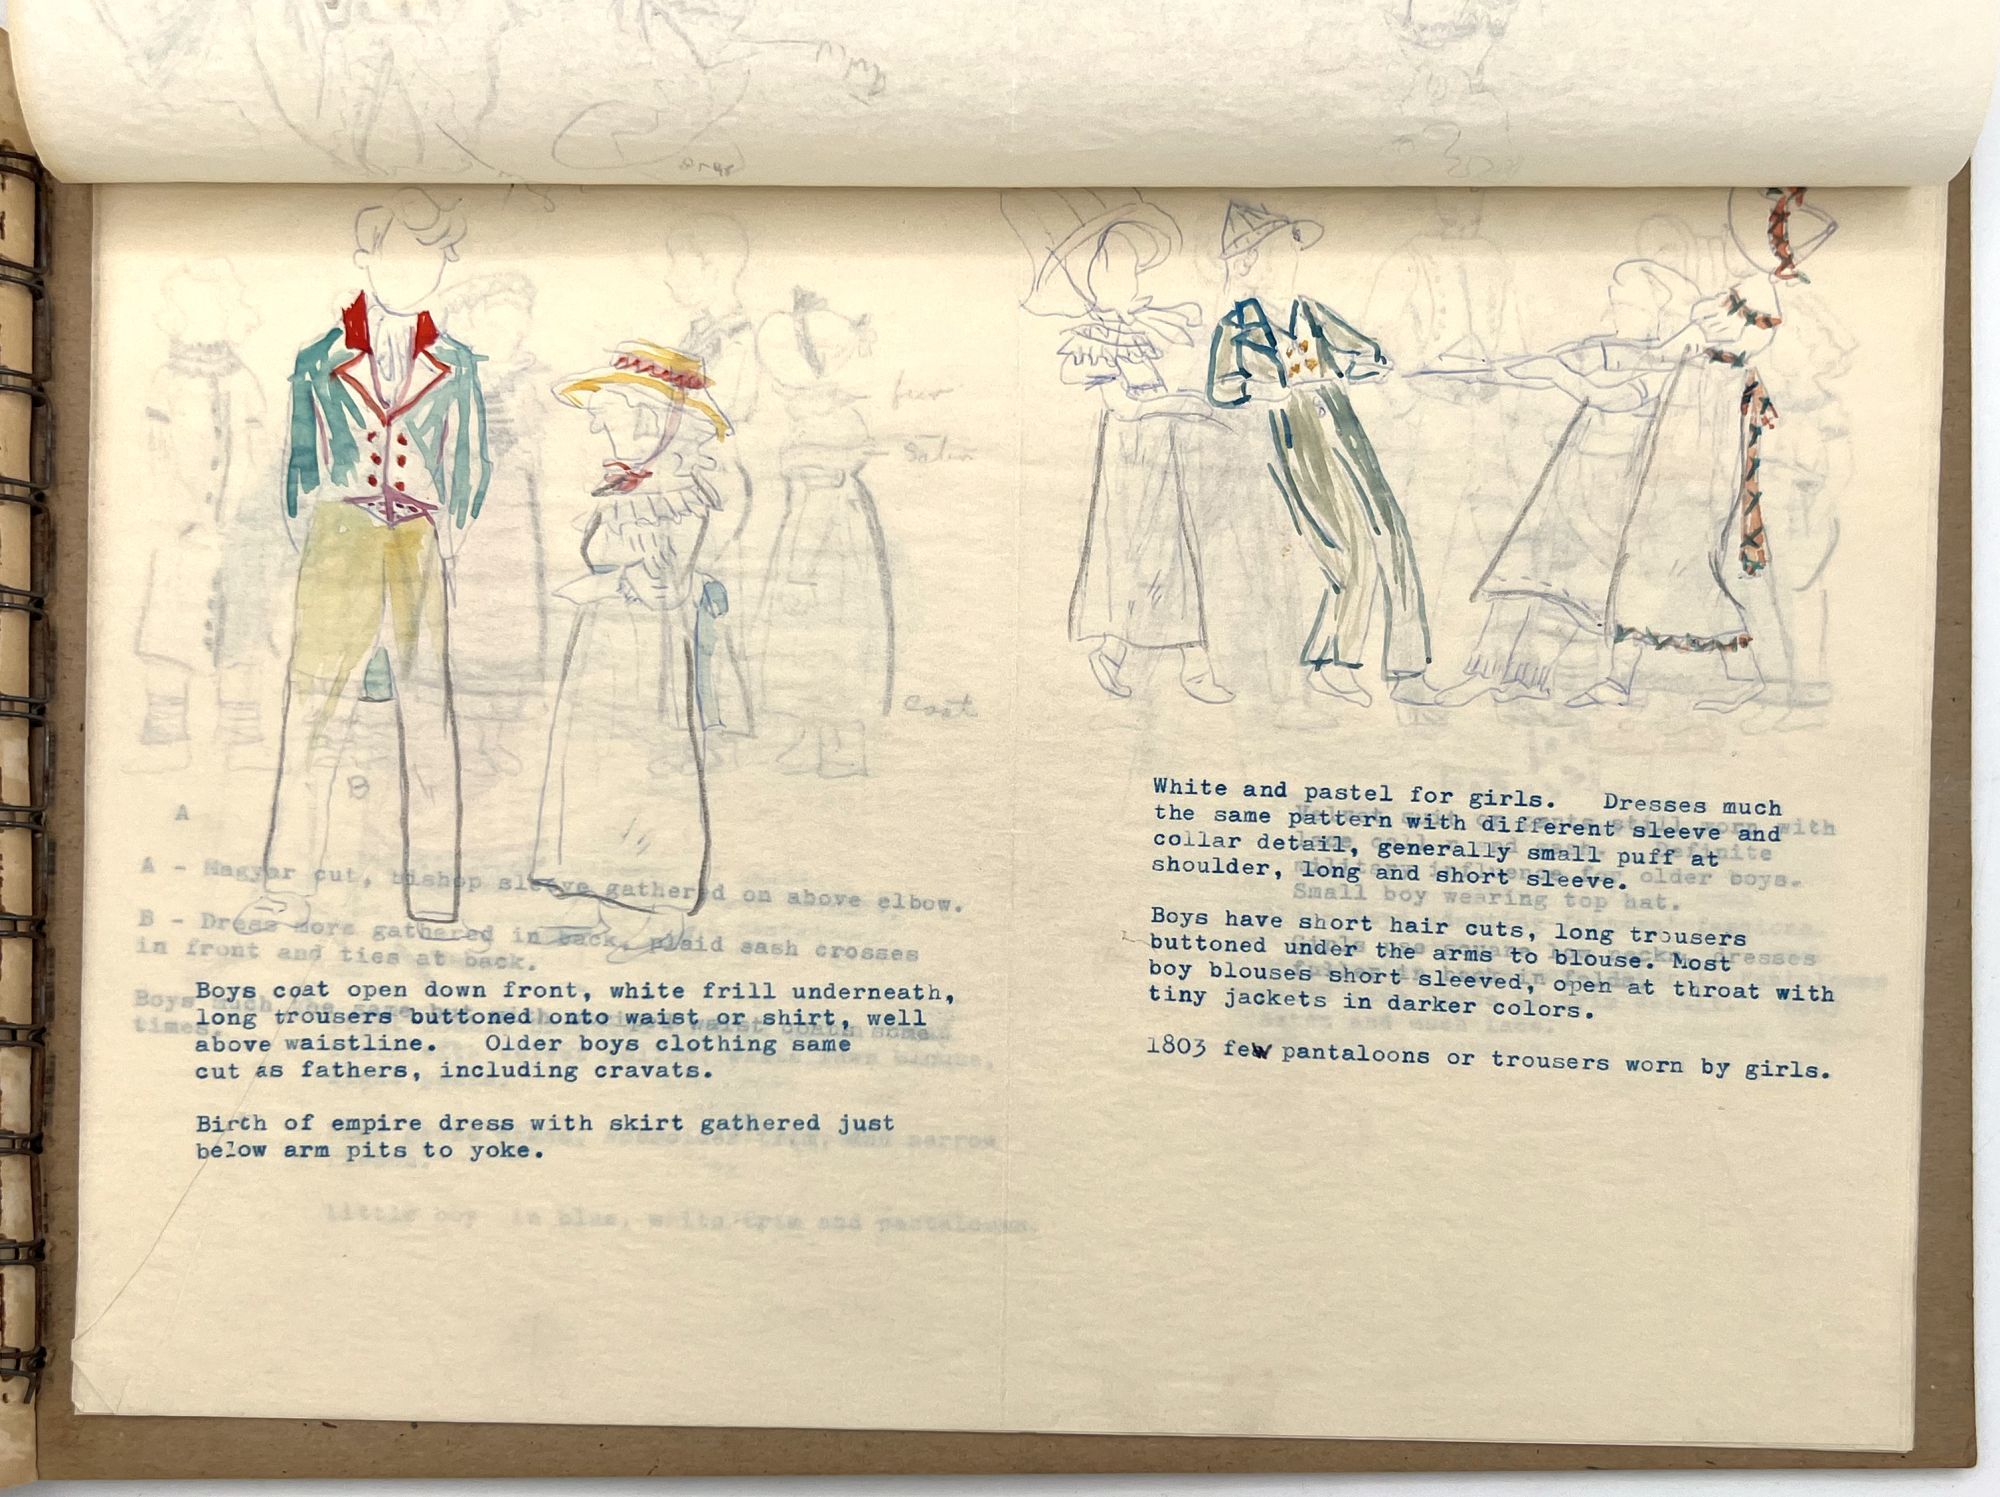 fur
Satin
Coat
A
B
A - Magyar cut, bishop sleeve gathered on above elbow.
B - Dress more gathered in back, plaid sash crosses
in front and ties at back.
Boys much the same
times.
Boys coat open down front, white frill underneath,
long trousers buttoned onto waist or shirt, well
above waistline. Older boys clothing same
cut as fathers, including cravats.
Birth of empire dress with skirt gathered just
below arm pits to yoke.
little boy in blue, white trim and pantaloons.
White and pastel for girls. Dresses much
the same pattern with different sleeve and
collar detail, generally small puff at
shoulder, long and short sleeve.
Boys have short hair cuts, long trousers
buttoned under the arms to blouse. Most
boy blouses short sleeved, open at throat with
tiny jackets in darker colors.
1803 few pantaloons or trousers worn by girls.
still worn with
Definite
military influence for older boys.
Small boy wearing top hat.
dresses